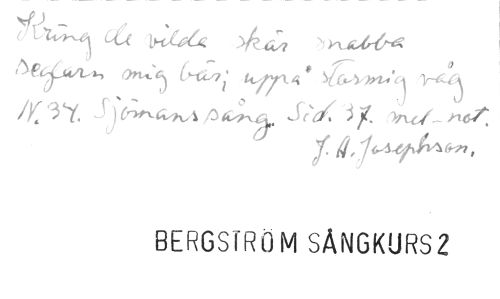 Kring de vilda skär snabba
seglarn mig bär; uppå stormig våg
N. 34. Sjömanssång. Sid. 37. mel-not.
J. A. Josephson.
BERGSTRÖM SÅNGKURS 2